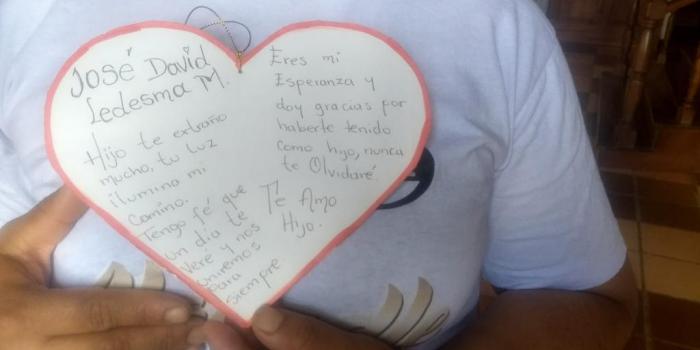 José David
Ledesma M.
Hijo te extraño
mucho, tu luz
ilumina mi
camino.
Tengo fé que
un día te
veré y nos
uniremos
para
siempre
Eres mi
Esperanza y
doy gracias por
haberte tenido
como hijo, nunca
te Olvidaré.
Te Amo
Hijo.